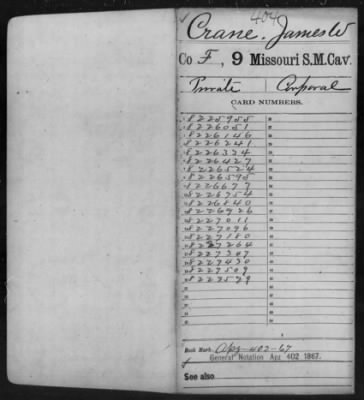 404
Crane, James W
Co F, 9 Missouri S.M.Cav.
Private Corporal
CARD NUMBERS.
8225955
8226051
8226146
8226241
8226334
8226427
8226524
8226595
8226677
8226754
8226840
8226926
8227011
8227096
8227180
8227264
8227347
8227430
8227509
8227579
Book Mark: Apr-402-67
General Notation Apr 402 1867.
See also